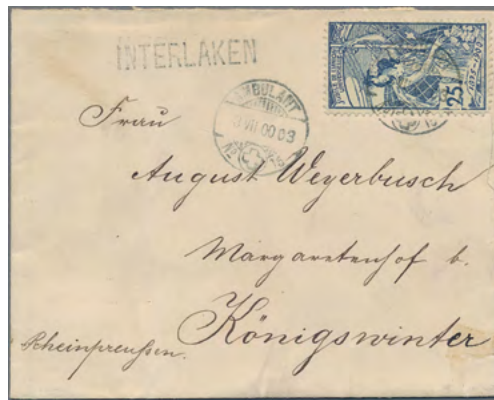 INTERLAKEN
AMBULANT
VII 00
25
Frau
August Weyerbusch
Margaretenhof b.
Königswinter
Rheinpreußen.